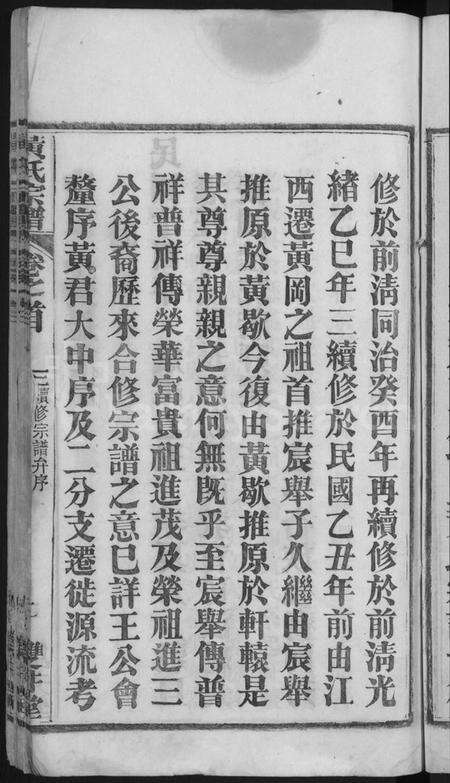 修於前清同治癸酉年再續修於前清光
緒乙巳年三續修於民國乙丑年前由江
西遷黃岡之祖首推宸舉子久繼由宸舉
推原於黃歇今復由黃歇推原於軒轅是
其尊尊親親之意何無既乎至宸舉傳普
祥普祥傳榮華富貴祖進茂及榮祖進三
公後裔歷來合修宗譜之意巳詳王公會
釐序黃君大中序及二分支遷徙源流考
黃氏宗譜
卷之首
三續修宗譜弁序
雙井堂
民